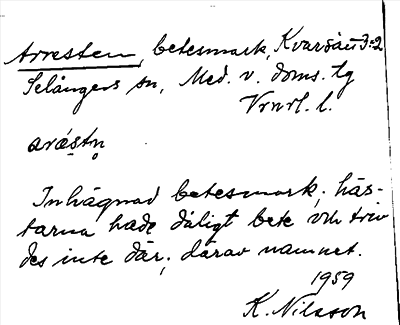 Arresten, betesmark, Kvarsätt 3:2
Selångers sn, Med. v. doms. tg
Vrnrl. l.
aräṣtn̥
Inhägnad betesmark; häs-
tarna hade dåligt bete och triv
des inte där, därav namnet.
1959
K. Nilsson